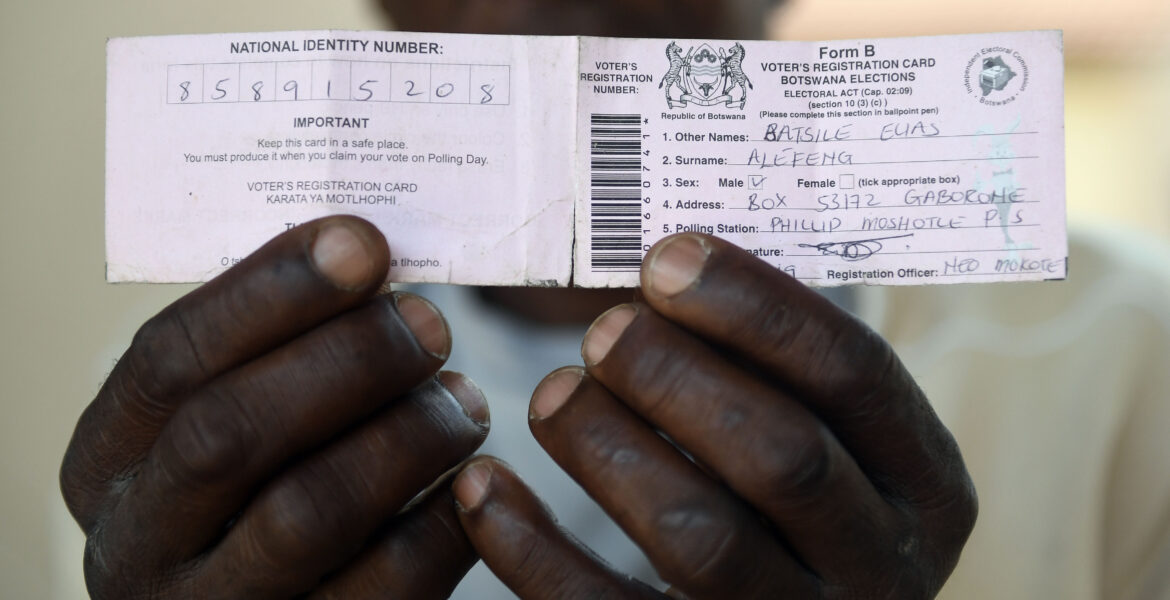 NATIONAL IDENTITY NUMBER:
858915208
IMPORTANT
Keep this card in a safe place.
You must produce it when you claim your vote on Polling Day.
VOTER'S REGISTRATION CARD
KARATA YA MOTLHOPHI
a tlhopho.
VOTER'S
REGISTRATION
NUMBER:
Republic of Botswana
Form B
VOTER'S REGISTRATION CARD
BOTSWANA ELECTIONS
ELECTORAL ACT (Cap. 02:09)
(section 10 (3) (c) )
(Please complete this section in ballpoint pen)
Independent Electoral Commission
Botswana
1. Other Names: BATSILE ELIAS
2. Surname: ALEFENG
3. Sex: Male Female (tick appropriate box)
4. Address: BOX 53172 GABORONE
5. Polling Station: PHILLIP MOSHOTLE P S
nature:
Registration Officer: NEO MOKOTE